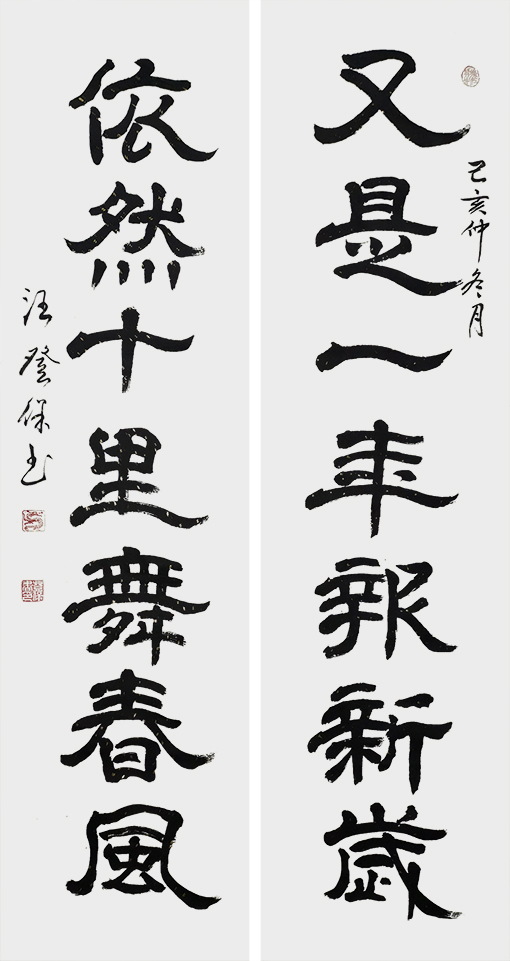 又是一年報新歲
己亥仲冬月
依然十里舞春風
汪登保书